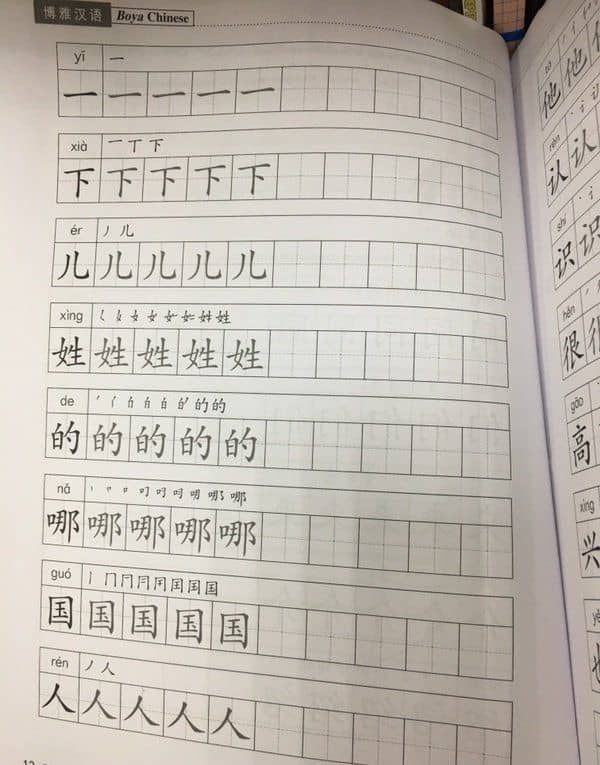 博雅汉语 Boya Chinese
yī 一
一 一 一 一 一
xià 一 丅 下
下 下 下 下 下
ér 丿 儿
儿 儿 儿 儿 儿
xìng 女 姓
姓 姓 姓 姓 姓
de 的 的
的 的 的 的 的
nǎ 哪 哪
哪 哪 哪 哪 哪
guó 丨 冂 国 国
国 国 国 国 国
rén 丿 人
人 人 人 人 人
他 他 他
rèn
认 认
shi
识 识
hěn
很
gāo
高
xìng
兴